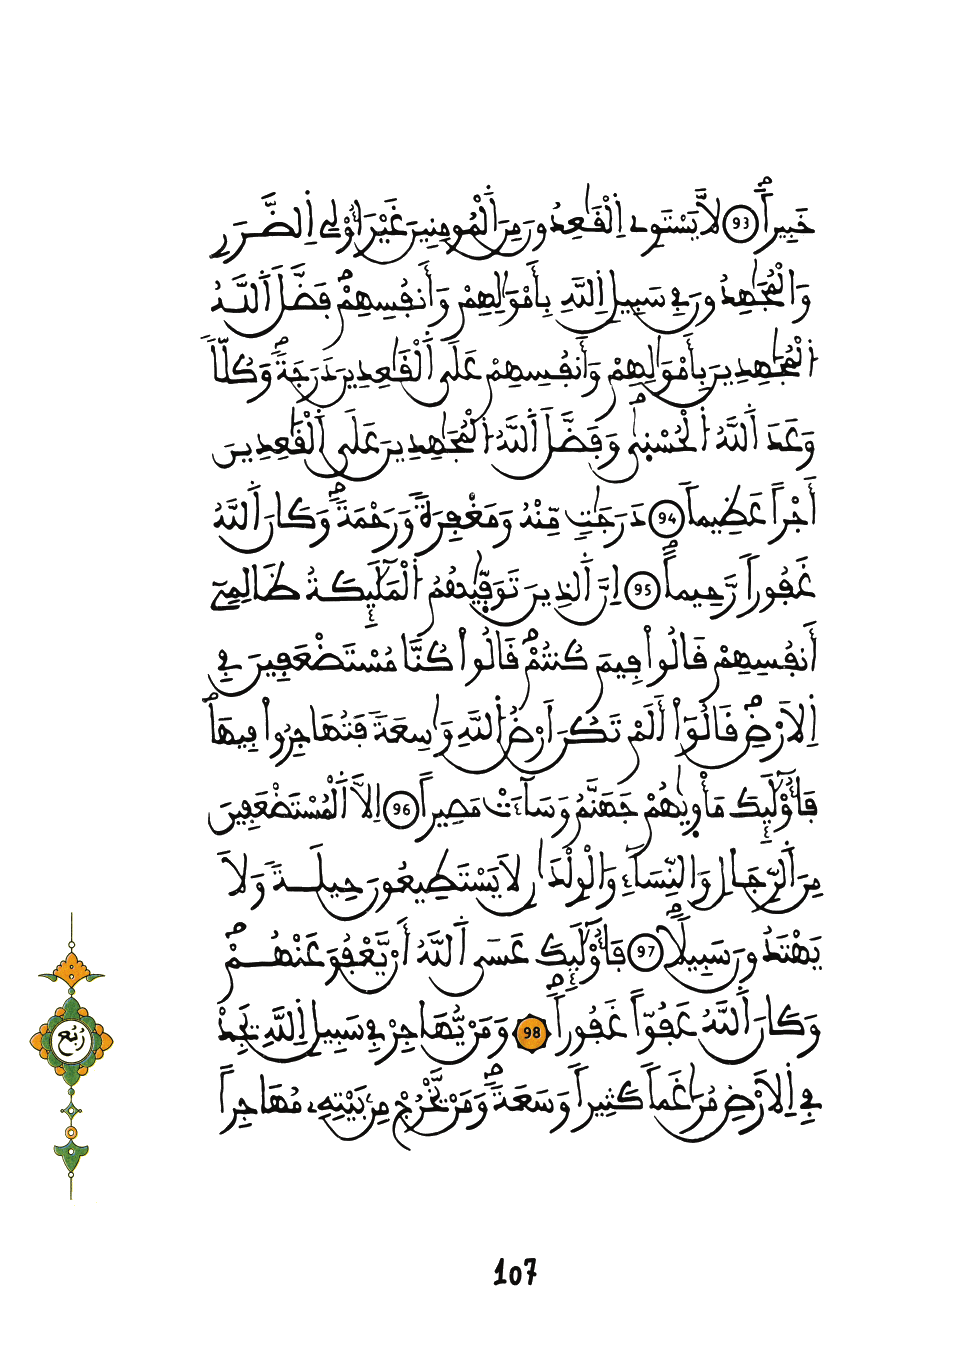 خَبِيراًۖ 93 لَّا يَسْتَوِے اِ۬لْقَٰعِدُونَ مِنَ اَ۬لْمُومِنِينَ غَيْرَ أُوْلِے اِ۬لضَّرَرِ
وَالْمُجَٰهِدُونَ فِے سَبِيلِ اِ۬للَّهِ بِأَمْوَٰلِهِمْ وَأَنفُسِهِمْۖ فَضَّلَ اَ۬للَّهُ
اُ۬لْمُجَٰهِدِينَ بِأَمْوَٰلِهِمْ وَأَنفُسِهِمْ عَلَي اَ۬لْقَٰعِدِينَ دَرَجَةٗۖ وَكُلّاٗ
وَعَدَ اَ۬للَّهُ اُ۬لْحُسْن۪يٰۖ وَفَضَّلَ اَ۬للَّهُ اُ۬لْمُجَٰهِدِينَ عَلَي اَ۬لْقَٰعِدِينَ
أَجْراً عَظِيماٗ 94 دَرَجَٰتٖ مِّنْهُ وَمَغْفِرَةٗ وَرَحْمَةٗۖ وَكَانَ اَ۬للَّهُ
غَفُوراٗ رَّحِيماًۖ 95 اِنَّ اَ۬لذِينَ تَوَفّ۪يٰهُمُ اُ۬لْمَلَٰٓئِكَةُ ظَالِمِےٓ
أَنفُسِهِمْ قَالُواْ فِيمَ كُنتُمْۖ قَالُواْ كُنَّا مُسْتَضْعَفِينَ فِے
اِ۬لَارْضِۖ قَالُوٓاْ أَلَمْ تَكُنَ اَرْضُ اُ۬للَّهِ وَٰسِعَةٗ فَتُهَاجِرُواْ فِيهَاۖ
فَأُوْلَٰٓئِكَ مَأْو۪يٰهُمْ جَهَنَّمُ وَسَآءَتْ مَصِيراً 96 اِلَّا اَ۬لْمُسْتَضْعَفِينَ
مِنَ اَ۬لرِّجَالِ وَالنِّسَآءِ وَالْوِلْدَٰنِ لَا يَسْتَطِيعُونَ حِيلَةٗ وَلَا
يَهْتَدُونَ سَبِيلاٗۖ 97 فَأُوْلَٰٓئِكَ عَسَي اَ۬للَّهُ أَنْ يَّعْفُوَ عَنْهُمْۖ
وَكَانَ اَ۬للَّهُ عَفُوّاً غَفُوراٗۖ 98 وَمَنْ يُّهَاجِرْ فِے سَبِيلِ اِ۬للَّهِ يَجِدْ
فِے اِ۬لَارْضِ مُرَٰغَماٗ كَثِيراٗ وَسَعَةٗۖ وَمَنْ يَّخْرُجْ مِنۢ بَيْتِهِۦ مُهَاجِراً
رُبُع
107